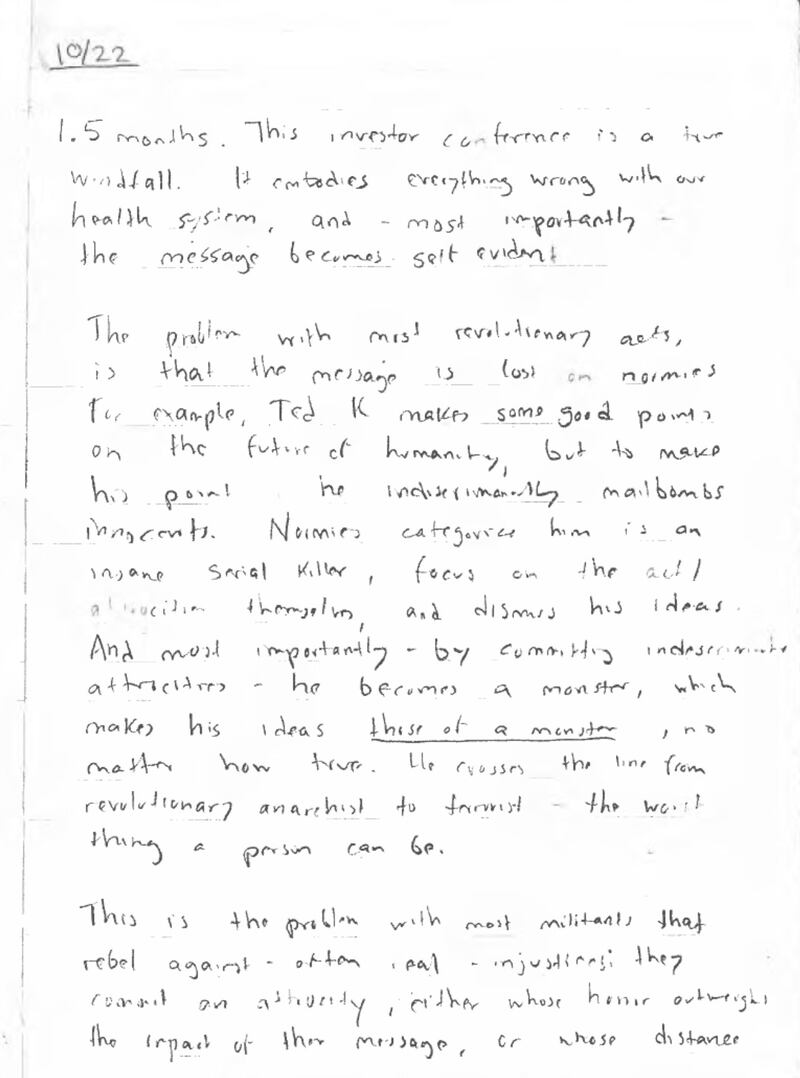 10/22
1.5 months. This investor conference is a true
windfall. It embodies everything wrong with our
health system, and - most importantly -
the message becomes self evident
The problem with most revolutionary acts,
is that the message is lost on normies
For example, Ted K makes some good points
on the future of humanity, but to make
his point he indiscriminantly mailbombs
innocents. Normies categorize him is an
insane serial killer, focus on the act/
themselves, and dismiss his ideas.
And most importantly - by committing indescriminate
attricitres - he becomes a monster, which
makes his ideas those of a monster, no
matter how true. He crosses the line from
revolutionary anarchist to terrorist - the worst
thing a person can be.
This is the problem with most militants that
rebel against - often real - injustices: they
commit an atrocity, either whose horror outweighs
the impact of their message, or whose distance